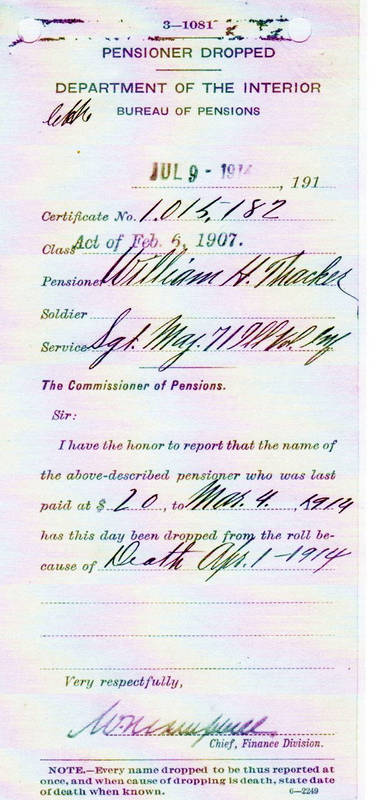 3—1081
PENSIONER DROPPED
DEPARTMENT OF THE INTERIOR
BUREAU OF PENSIONS
JUL 9 - 1914, 191
Certificate No. 1.015,182
Class Act of Feb. 6, 1907.
Pensioner William H. Thacker
Soldier
Service Sgt. Maj. 71 Ill Vol Inf
The Commissioner of Pensions.
Sir:
I have the honor to report that the name of
the above-described pensioner who was last
paid at $ 20, to Mar. 4, 1914
has this day been dropped from the roll be-
cause of Death Apr. 1-1914
Very respectfully,
Chief, Finance Division.
NOTE.—Every name dropped to be thus reported at
once, and when cause of dropping is death, state date
of death when known. 6—2249